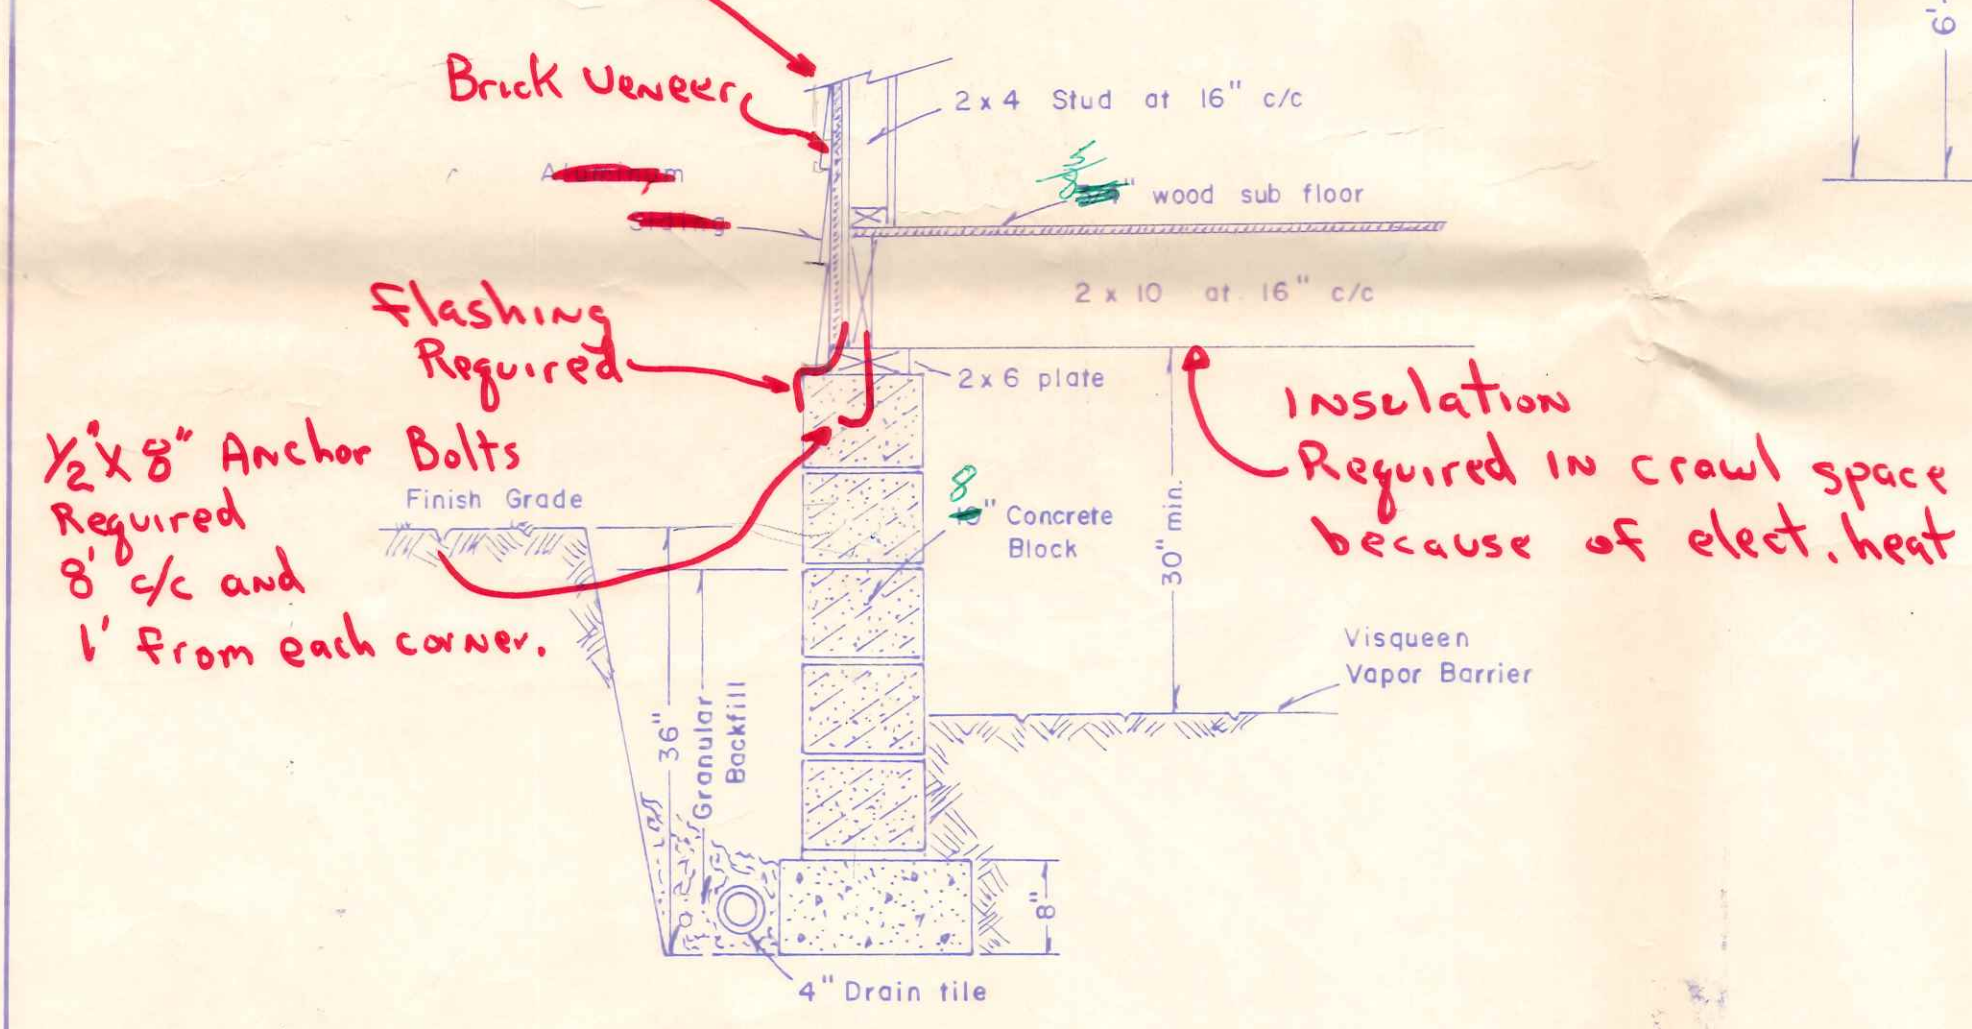 6'-
Brick Veneer
2 x 4 Stud at 16" c/c
Aluminum
Siding
5/8" wood sub floor
2 x 10 at 16" c/c
Flashing
Required
2 x 6 plate
Insulation
Required in crawl space
because of elect. heat
1/2" x 8" Anchor Bolts
Required
8' c/c and
1' from each corner.
Finish Grade
8" Concrete
Block
30" min.
Visqueen
Vapor Barrier
36"
Granular
Backfill
8"
4" Drain tile